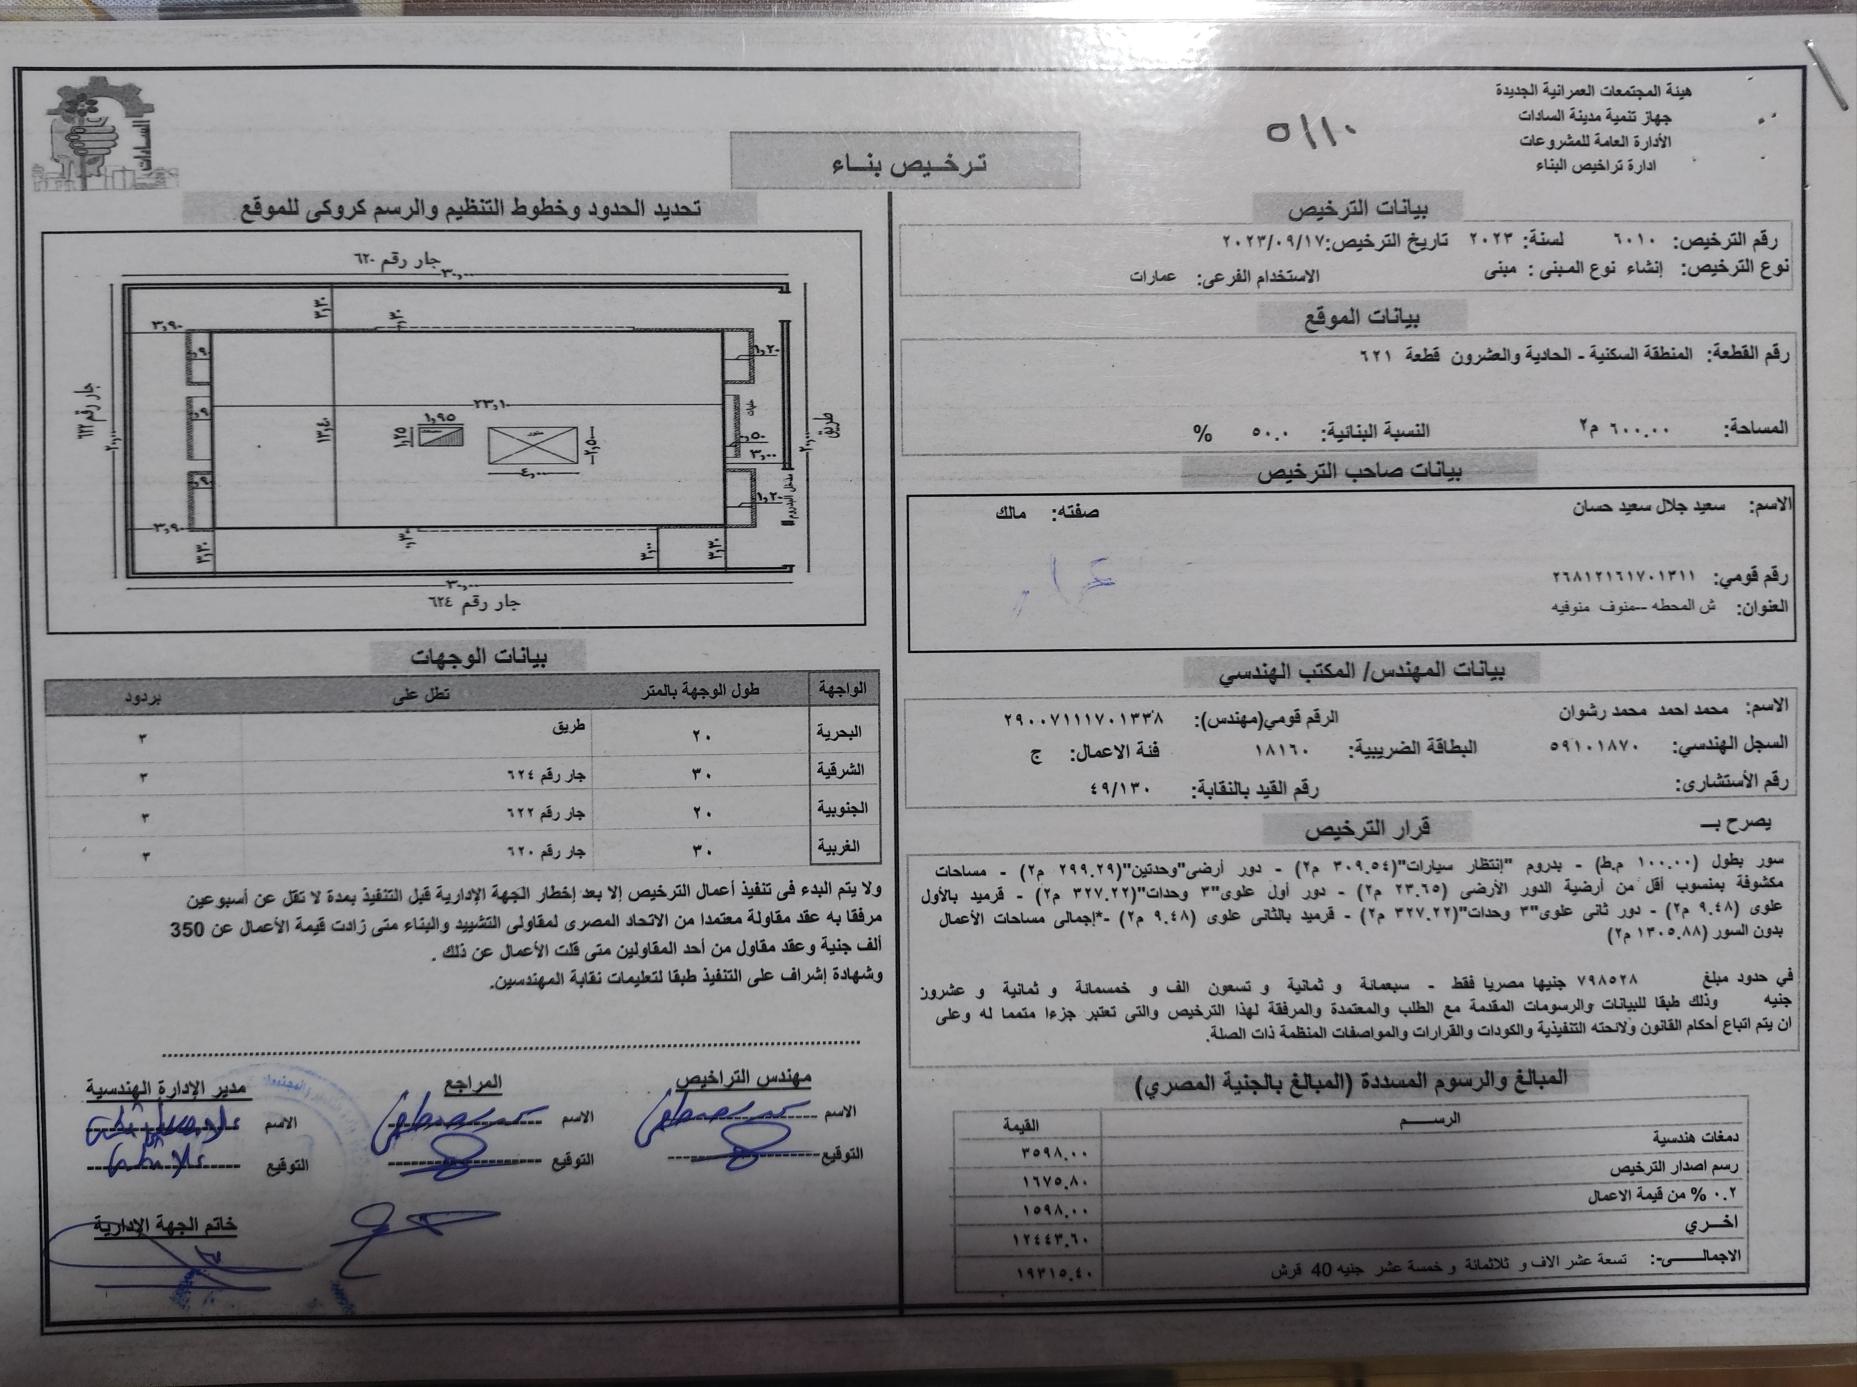 هيئة المجتمعات العمرانية الجديدة
جهاز تنمية مدينة السادات
الأدارة العامة للمشروعات
ادارة تراخيص البناء
٥١١٠
السادات
ترخيص بناء
بيانات الترخيص
رقم الترخيص: ٦٠١٠ لسنة: ٢٠٢٣ تاريخ الترخيص:٢٠٢٣/٠٩/١٧
نوع الترخيص: إنشاء نوع المبنى : مبنى الاستخدام الفرعى: عمارات
بيانات الموقع
رقم القطعة: المنطقة السكنية - الحادية والعشرون قطعة ٦٢١
المساحة: ٦٠٠.٠٠ م٢ النسبة البنائية: ٥٠.٠ %
بيانات صاحب الترخيص
الاسم: سعيد جلال سعيد حسان صفته: مالك
رقم قومي: ٢٦٨١٢١٦١٧٠١٣١١
العنوان: ش المحطه --منوف منوفيه
بيانات المهندس/ المكتب الهندسي
الاسم: محمد احمد محمد رشوان الرقم قومي(مهندس): ٢٩٠٠٧١١١٧٠١٣٣٨
السجل الهندسي: ٥٩١٠١٨٧٠ البطاقة الضريبية: ١٨١٦٠ فئة الاعمال: ج
رقم الأستشارى: رقم القيد بالنقابة: ٤٩/١٣٠
قرار الترخيص
يصرح بـ
سور بطول (١٠٠.٠٠ م.ط) - بدروم "إنتظار سيارات"(٣٠٩.٥٤ م٢) - دور أرضى"وحدتين"(٢٩٩.٢٩ م٢) - مساحات
مكشوفة بمنسوب أقل من أرضية الدور الأرضى (٢٣.٦٥ م٢) - دور أول علوى"٣ وحدات"(٣٢٧.٢٢ م٢) - قرميد بالأول
علوى (٩.٤٨ م٢) - دور ثانى علوى"٣ وحدات"(٣٢٧.٢٢ م٢) - قرميد بالثانى علوى (٩.٤٨ م٢) -*إجمالى مساحات الأعمال
بدون السور (١٣٠٥.٨٨ م٢)
في حدود مبلغ ٧٩٨٥٢٨ جنيها مصريا فقط - سبعمائة و ثمانية و تسعون الف و خمسمائة و ثمانية و عشرون
جنيه وذلك طبقا للبيانات والرسومات المقدمة مع الطلب والمعتمدة والمرفقة لهذا الترخيص والتى تعتبر جزءا متمما له وعلى
ان يتم اتباع أحكام القانون ولائحته التنفيذية والكودات والقرارات والمواصفات المنظمة ذات الصلة.
المبالغ والرسوم المسددة (المبالغ بالجنية المصري)
الرســــم القيمة
دمغات هندسية ٣٥٩٨.٠٠
رسم اصدار الترخيص ١٦٧٥.٨٠
٠.٢ % من قيمة الاعمال ١٥٩٨.٠٠
اخـــري ١٢٤٤٣.٦٠
الاجمالــــى:- تسعة عشر الاف و ثلاثمائة و خمسة عشر جنيه 40 قرش ١٩٣١٥.٤٠
تحديد الحدود وخطوط التنظيم والرسم كروكى للموقع
جار رقم ٦٢٠
٣٠,٠٠
٣,٣٠
,٣٠
٣,٩٠
,٩٠
١,٢٠
جار رقم ٦٢٢
٢٠,٠٠
٢٣,١٠
,٩٠
١٣,٤٠
١,٩٥
١,٢٥
٢,٥٠
٤,٠٠
,٥٠
٣,٠٠
طريق
٢٠,٠٠
مدخل البدروم
,٩٠
١,٢٠
٣,٩٠
٣,٣٠
,٣٠
٣,٠٠
٣,٣٠
٣٠,٠٠
جار رقم ٦٢٤
بيانات الوجهات
الواجهة طول الوجهة بالمتر تطل على بردود
البحرية ٢٠ طريق ٣
الشرقية ٣٠ جار رقم ٦٢٤ ٣
الجنوبية ٢٠ جار رقم ٦٢٢ ٣
الغربية ٣٠ جار رقم ٦٢٠ ٣
ولا يتم البدء فى تنفيذ أعمال الترخيص إلا بعد إخطار الجهة الإدارية قبل التنفيذ بمدة لا تقل عن أسبوعين
مرفقا به عقد مقاولة معتمدا من الاتحاد المصرى لمقاولى التشييد والبناء متى زادت قيمة الأعمال عن 350
ألف جنية وعقد مقاول من أحد المقاولين متى قلت الأعمال عن ذلك .
وشهادة إشراف على التنفيذ طبقا لتعليمات نقابة المهندسين.
مهندس التراخيص المراجع مدير الإدارة الهندسية
الاسم الاسم الاسم
التوقيع التوقيع التوقيع
خاتم الجهة الإدارية